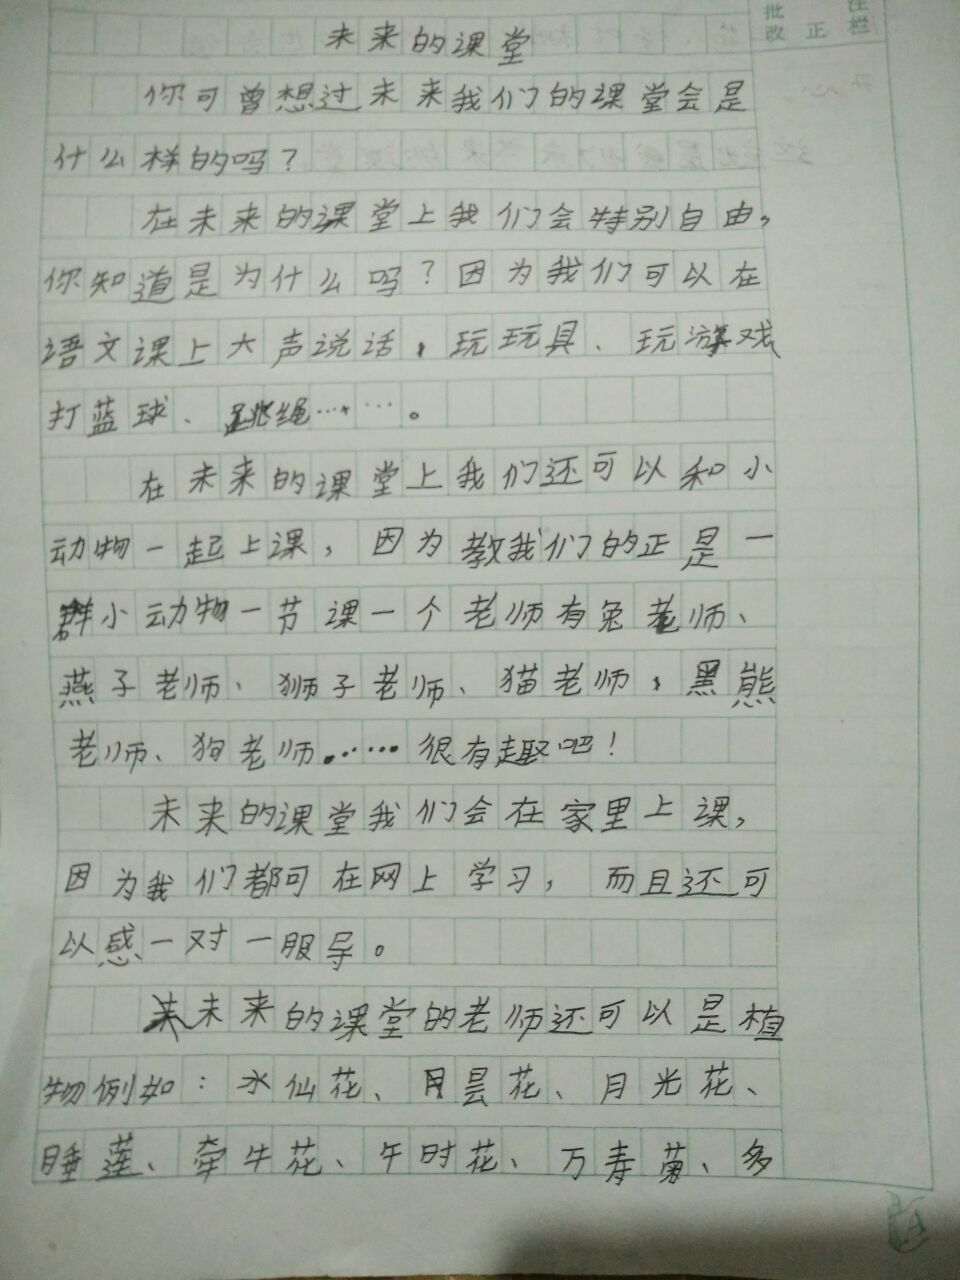 批注
改正栏
未来的课堂
你可曾想过未来我们的课堂会是
什么样的吗？
在未来的课堂上我们会特别自由，
你知道是为什么吗？因为我们可以在
语文课上大声说话，玩玩具、玩游戏
打蓝球、跳绳……。
在未来的课堂上我们还可以和小
动物一起上课，因为教我们的正是一
群小动物一节课一个老师有兔老师、
燕子老师、狮子老师、猫老师，黑熊
老师、狗老师……很有趣吧！
未来的课堂我们会在家里上课，
因为我们都可在网上学习，而且还可
以感一对一服导。
未来的课堂的老师还可以是植
物例如：水仙花、昙花、月光花、
睡莲、牵牛花、午时花、万寿菊、多